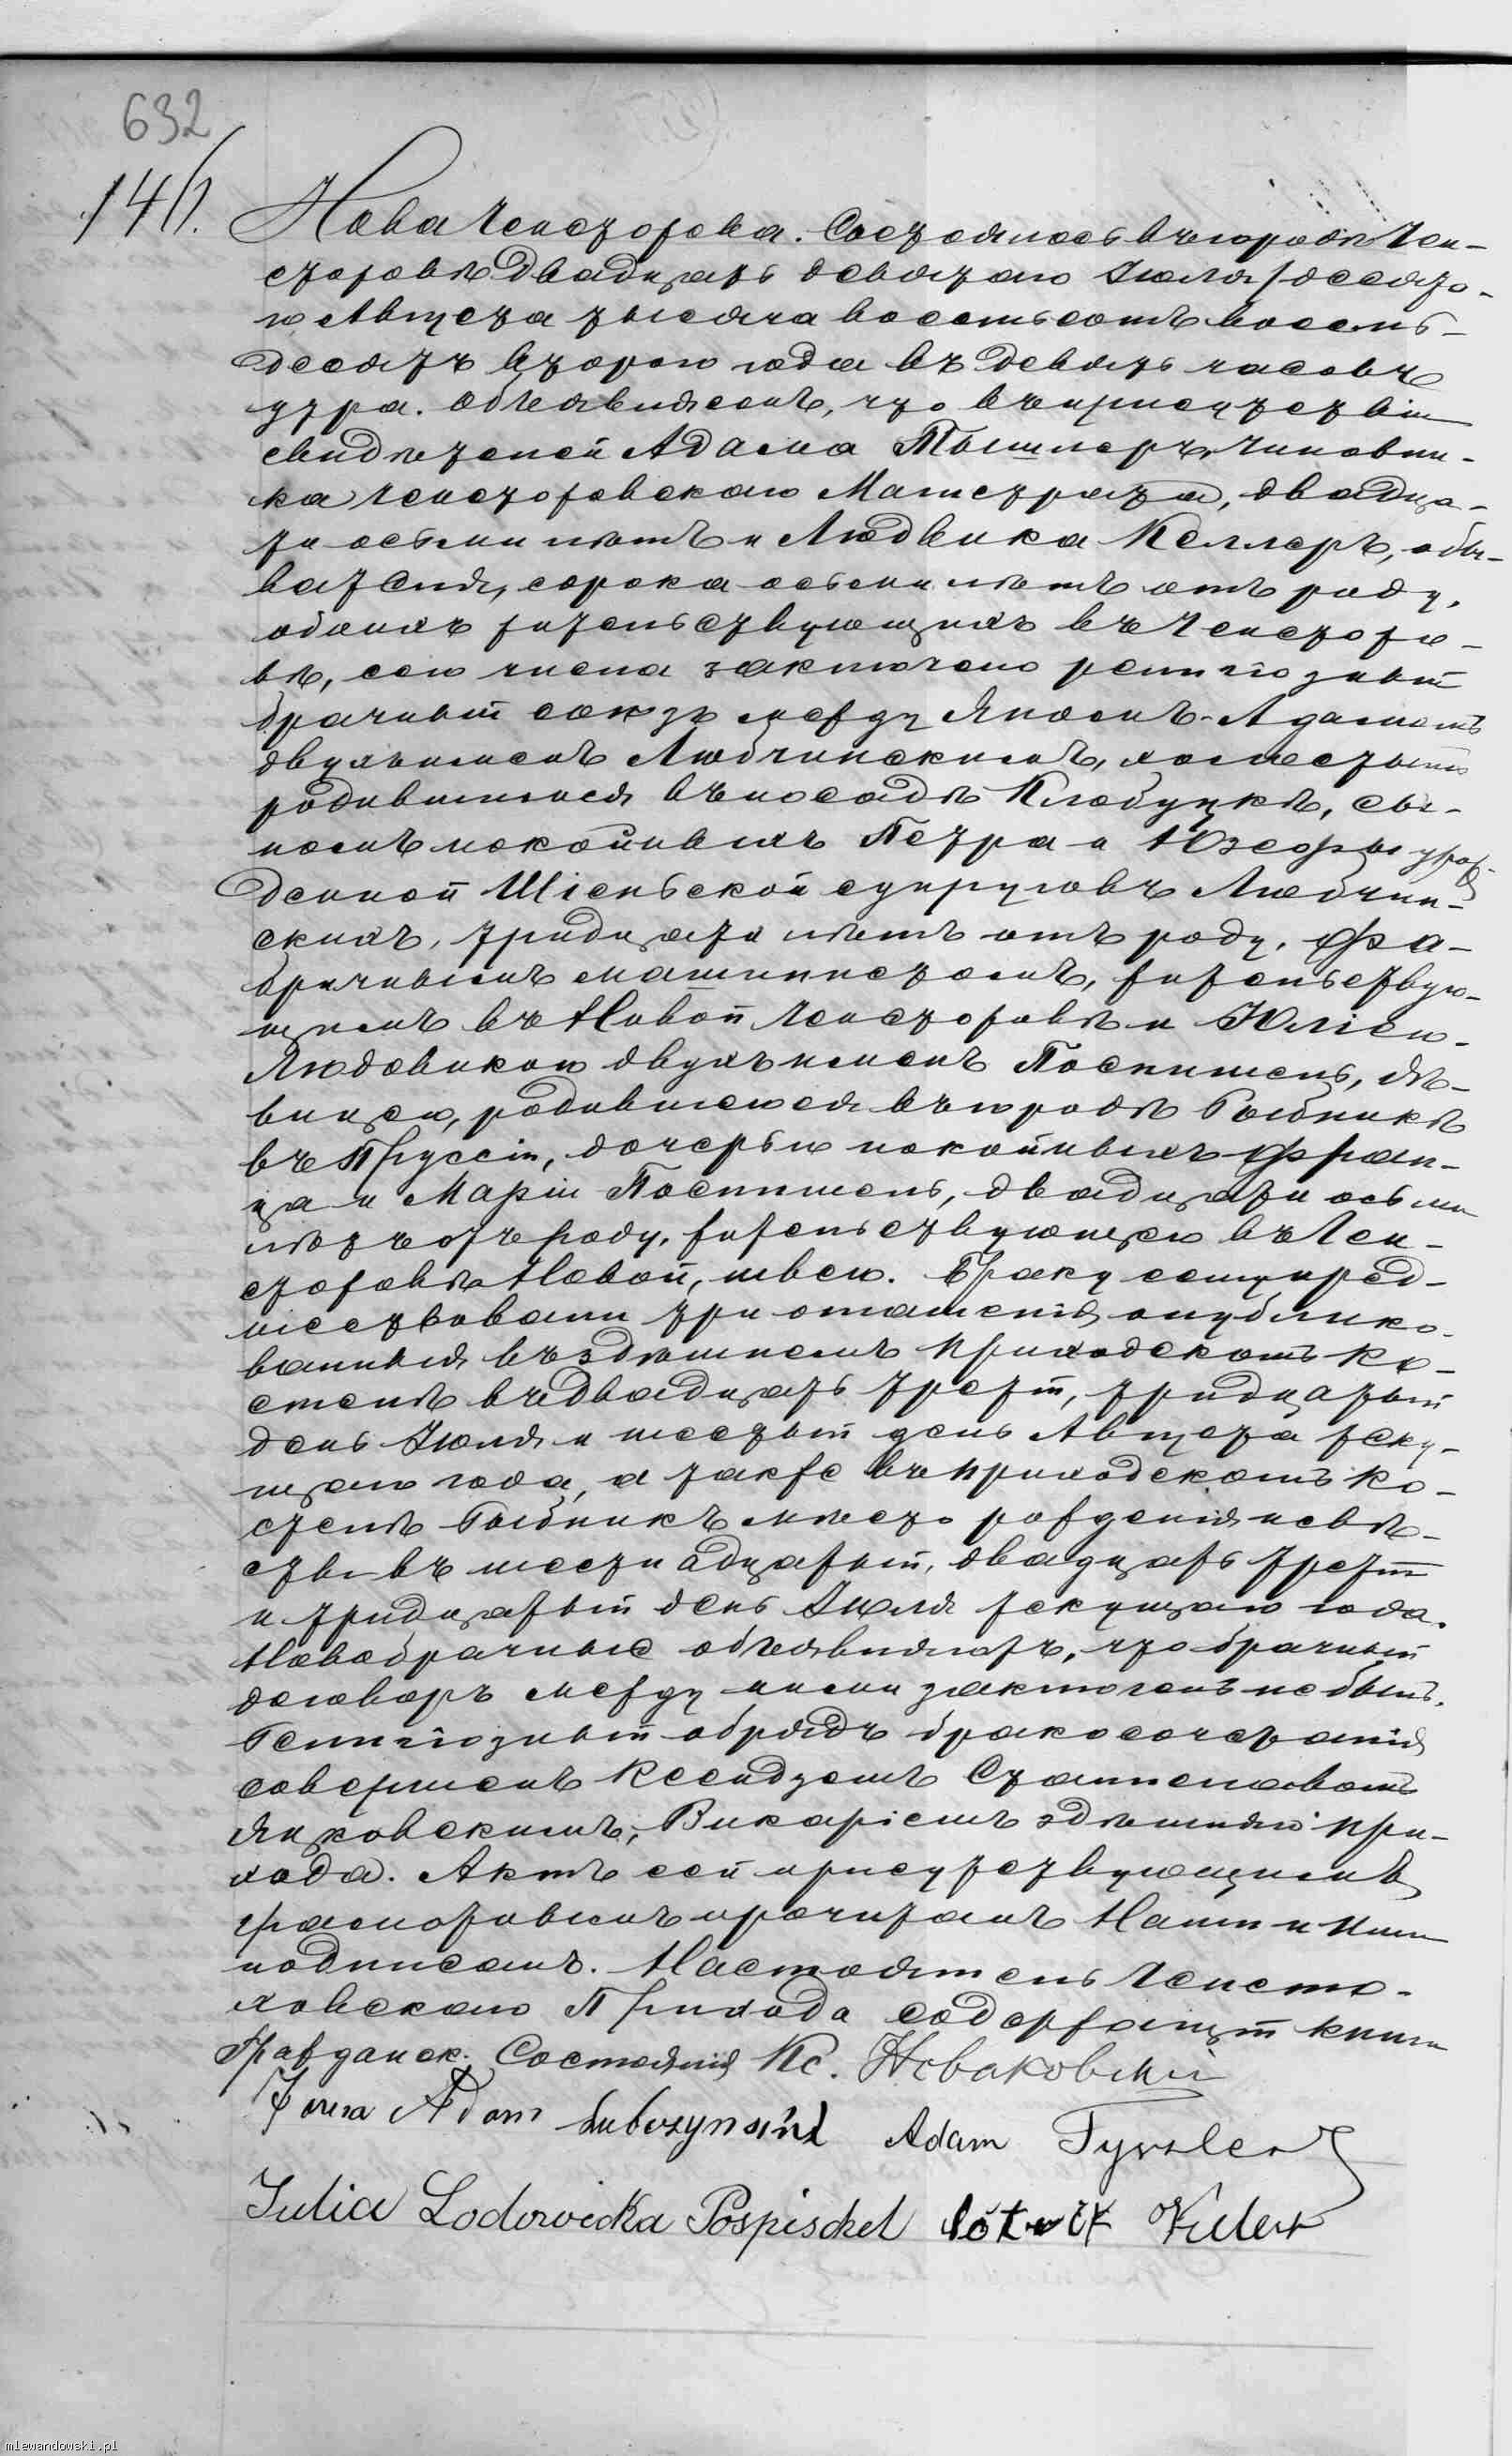 632
146.
Нова Ченстохова. Состоялось въ городѣ Чен-
стоховѣ двадцать девятаго Іюля/десято-
го Августа тысяча восемьсотъ восемь-
десятъ второго года въ девять часовъ
утра. Объявляемъ, что въ присутствіи
свидѣтелей Адама Тышлеръ, чиновни-
ка Ченстоховскаго Магистрата, двадца-
ти осьми лѣтъ и Людвика Келлеръ, обы-
вателя, сорока осьми лѣтъ отъ роду,
обоихъ жительствующихъ въ Ченстохо-
вѣ, сего числа заключено религіозный
брачный союзъ между Яномъ-Адамомъ
двухъименъ Любчинскимъ, холостымъ
родившимся въ посадѣ Клобуцкѣ, сы-
номъ покойныхъ Петра и Юзефы урож-
денной Шіеньской супруговъ Любчин-
скихъ, тридцати лѣтъ отъ роду, фа-
бричнымъ машинистомъ, жительствую-
щимъ въ Новой Ченстоховѣ и Юліею-
Людовикою двухъименъ Поспишель, дѣ-
вицею, родившеюся въ городѣ Рыбникѣ
въ Пруссіи, дочерью покойныхъ Фран-
ца и Маріи Поспишель, двадцати осьми
лѣтъ отъ роду, жительствующею въ Чен-
стоховѣ Новой, швеи. Браку сему пред-
шествовали три оглашенія опублико-
ванныя въ здѣшнемъ приходскомъ ко-
стелѣ въ двадцать третій, тридцатый
день Іюля и шестый день Августа теку-
щаго года, а также въ приходскомъ ко-
стелѣ Рыбникъ мѣсто рожденія невѣ-
сты въ шестнадцатый, двадцать третій
и тридцатый день Іюля текущаго года.
Новобрачные объявляютъ, что брачный
договоръ между ними заключенъ не былъ.
Религіозный обрядъ бракосочетанія
совершенъ Ксендзомъ Станиславомъ
Янковскимъ, Викаріемъ здѣшняго при-
хода. Актъ сей присутствующимъ
грамотнымъ прочитанъ Нами и ими
подписанъ. Настоятель Ченсто-
ховскаго Прихода содержащій книги
Граждансk. Состоянія Кс. Новаковскій
Jana Adam Lubczynski Adam Tyszler
Julia Lodowicka Pospischel Keler
mlewandowski.pl